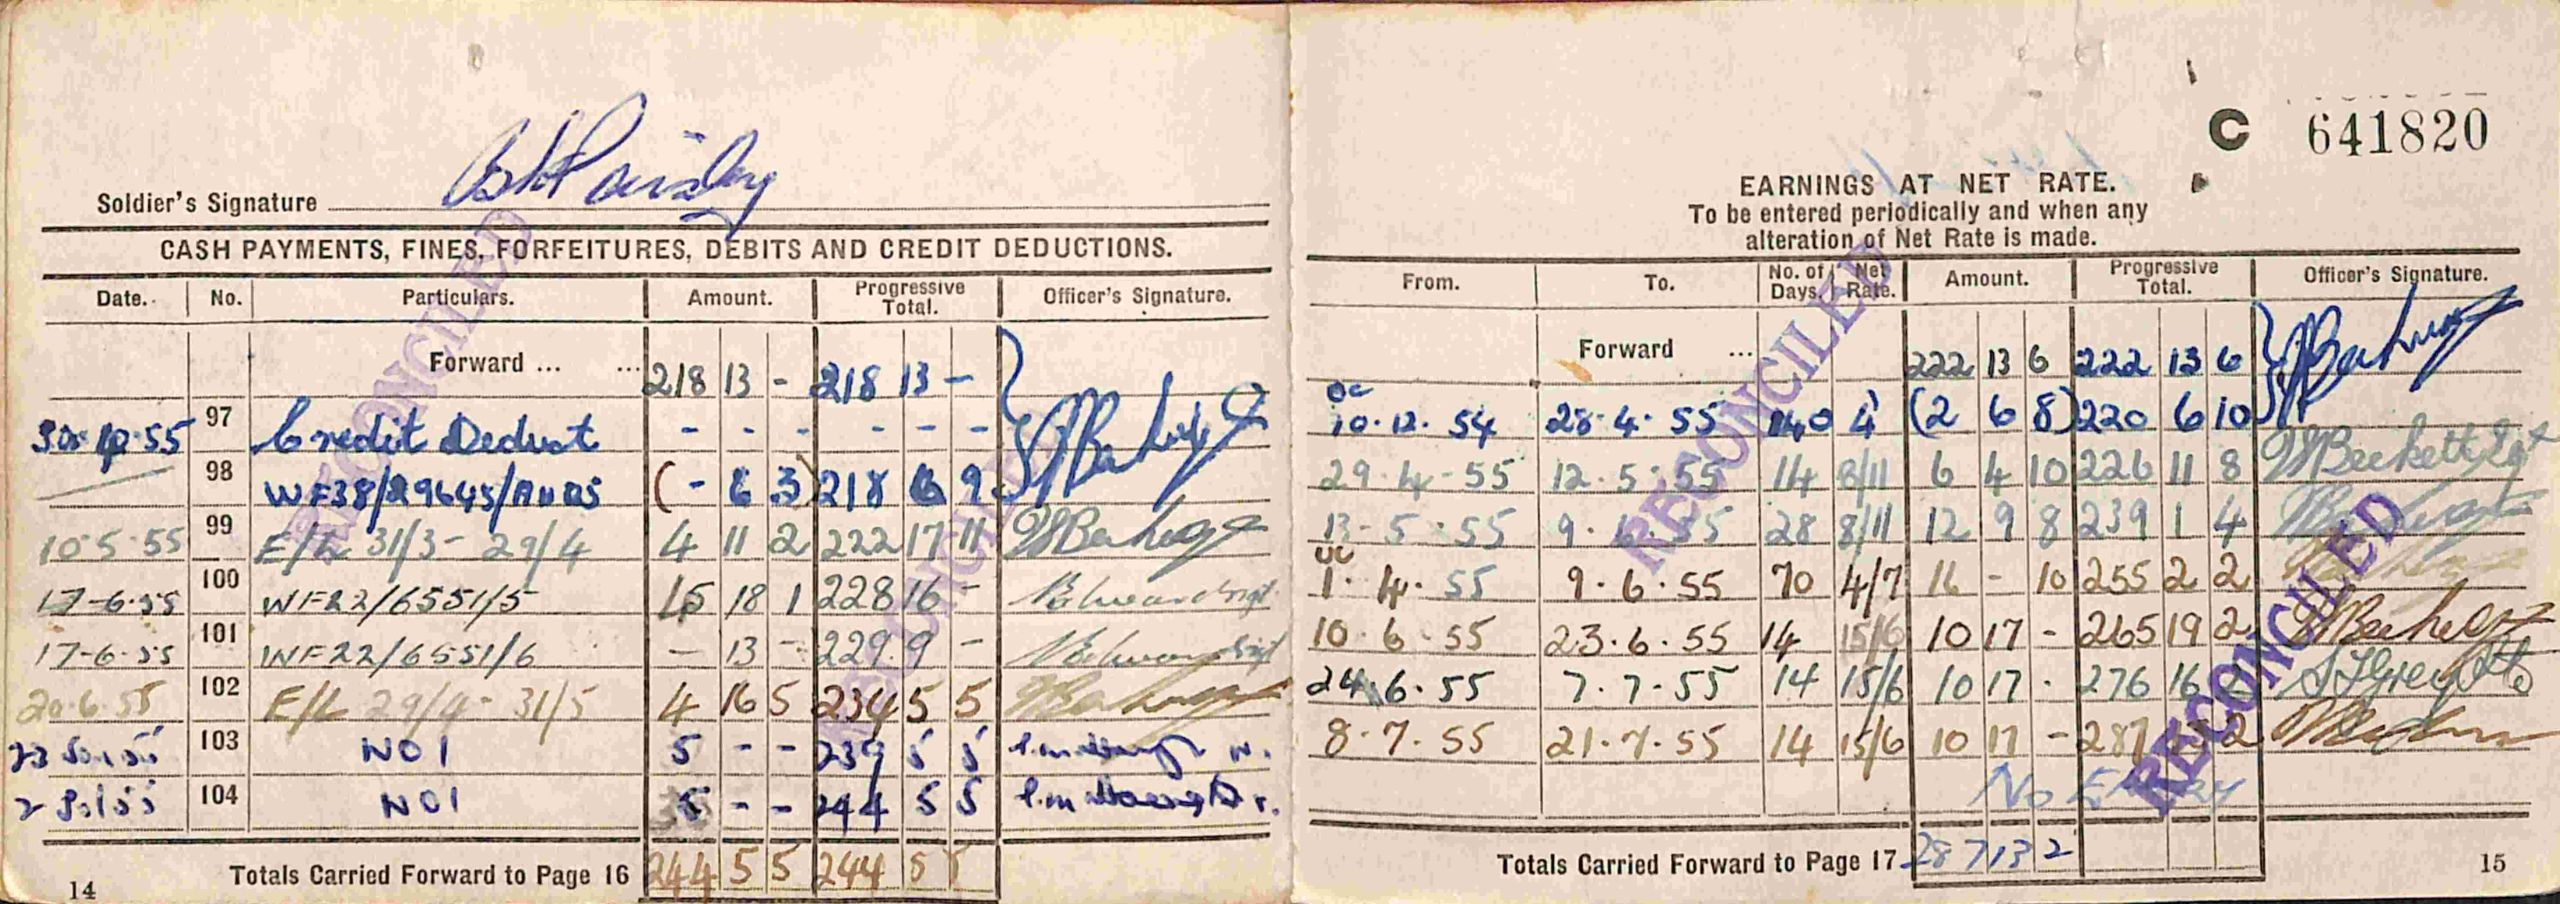 Soldier's Signature
CASH PAYMENTS, FINES, FORFEITURES, DEBITS AND CREDIT DEDUCTIONS.
Date. No. Particulars. Amount. Progressive Total. Officer's Signature.
Forward ... ... 218 13 - 218 13 -
97 Credit Deduct - - - - - -
98 WF38/29645/AURS (- 6 3) 218 6 9
10·5·55 99 E/L 31/3 - 29/4 4 11 2 222 17 11
17-6-55 100 WF22/6551/5 5 18 1 228 16 -
17-6-55 101 WF22/6551/6 - 13 - 229 9 -
20·6·55 102 E/L 29/4 - 31/5 4 16 5 234 5 5
103 NO1 5 - - 239 5 5
104 NO1 5 - - 244 5 5
Totals Carried Forward to Page 16 244 5 5 244 5 5
14
C 641820
EARNINGS AT NET RATE.
To be entered periodically and when any
alteration of Net Rate is made.
From. To. No. of Days. Net Rate. Amount. Progressive Total. Officer's Signature.
Forward ... 222 13 6 222 13 6
OC
10·12·54 28·4·55 140 4 (2 6 8) 220 6 10
29·4·55 12·5·55 14 8/11 6 4 10 226 11 8 Beckett
13-5-55 9·6·55 28 8/11 12 9 8 239 1 4
UC
1·4·55 9·6·55 70 4/7 16 - 10 255 2 2
10·6·55 23·6·55 14 15/6 10 17 - 265 19 2
24·6·55 7·7·55 14 15/6 10 17 · 276 16 2
8·7·55 21·7·55 14 15/6 10 17 - 287 13 2
No Entry
Totals Carried Forward to Page 17 287 13 2
15
RECONCILED
RECONCILED
RECONCILED
RECONCILED